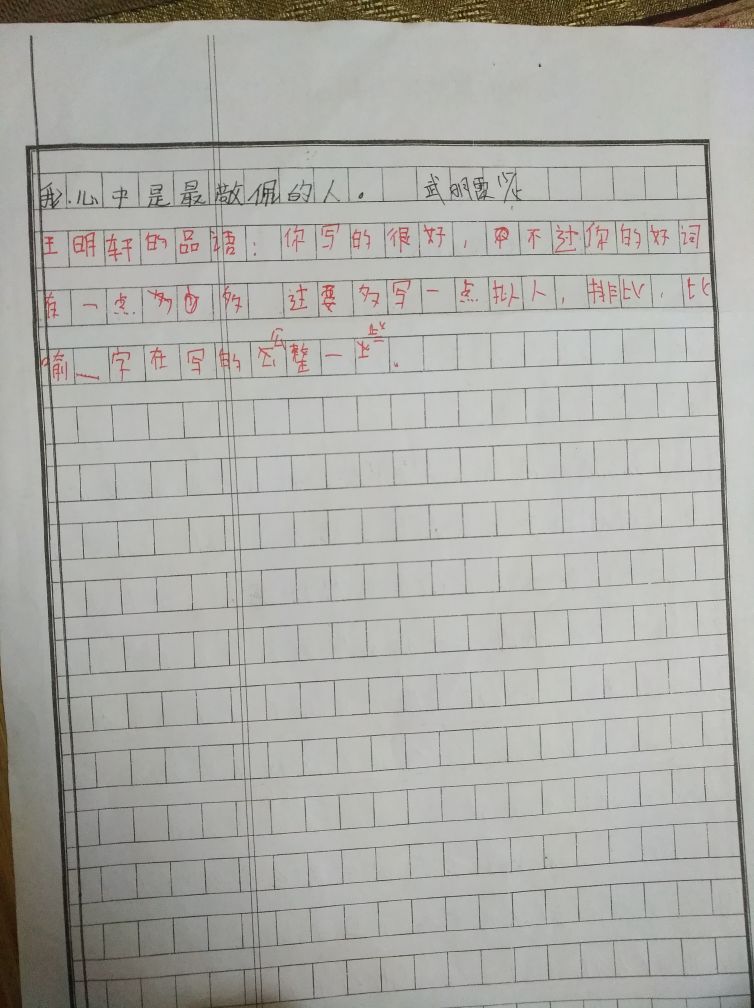 我心中是最敬佩的人。 武明霞
王明轩的品语：你写的很好，不过你的好词
在一点 的 还要多写一点拟人，排比，比
喻 字在写的 整一点。